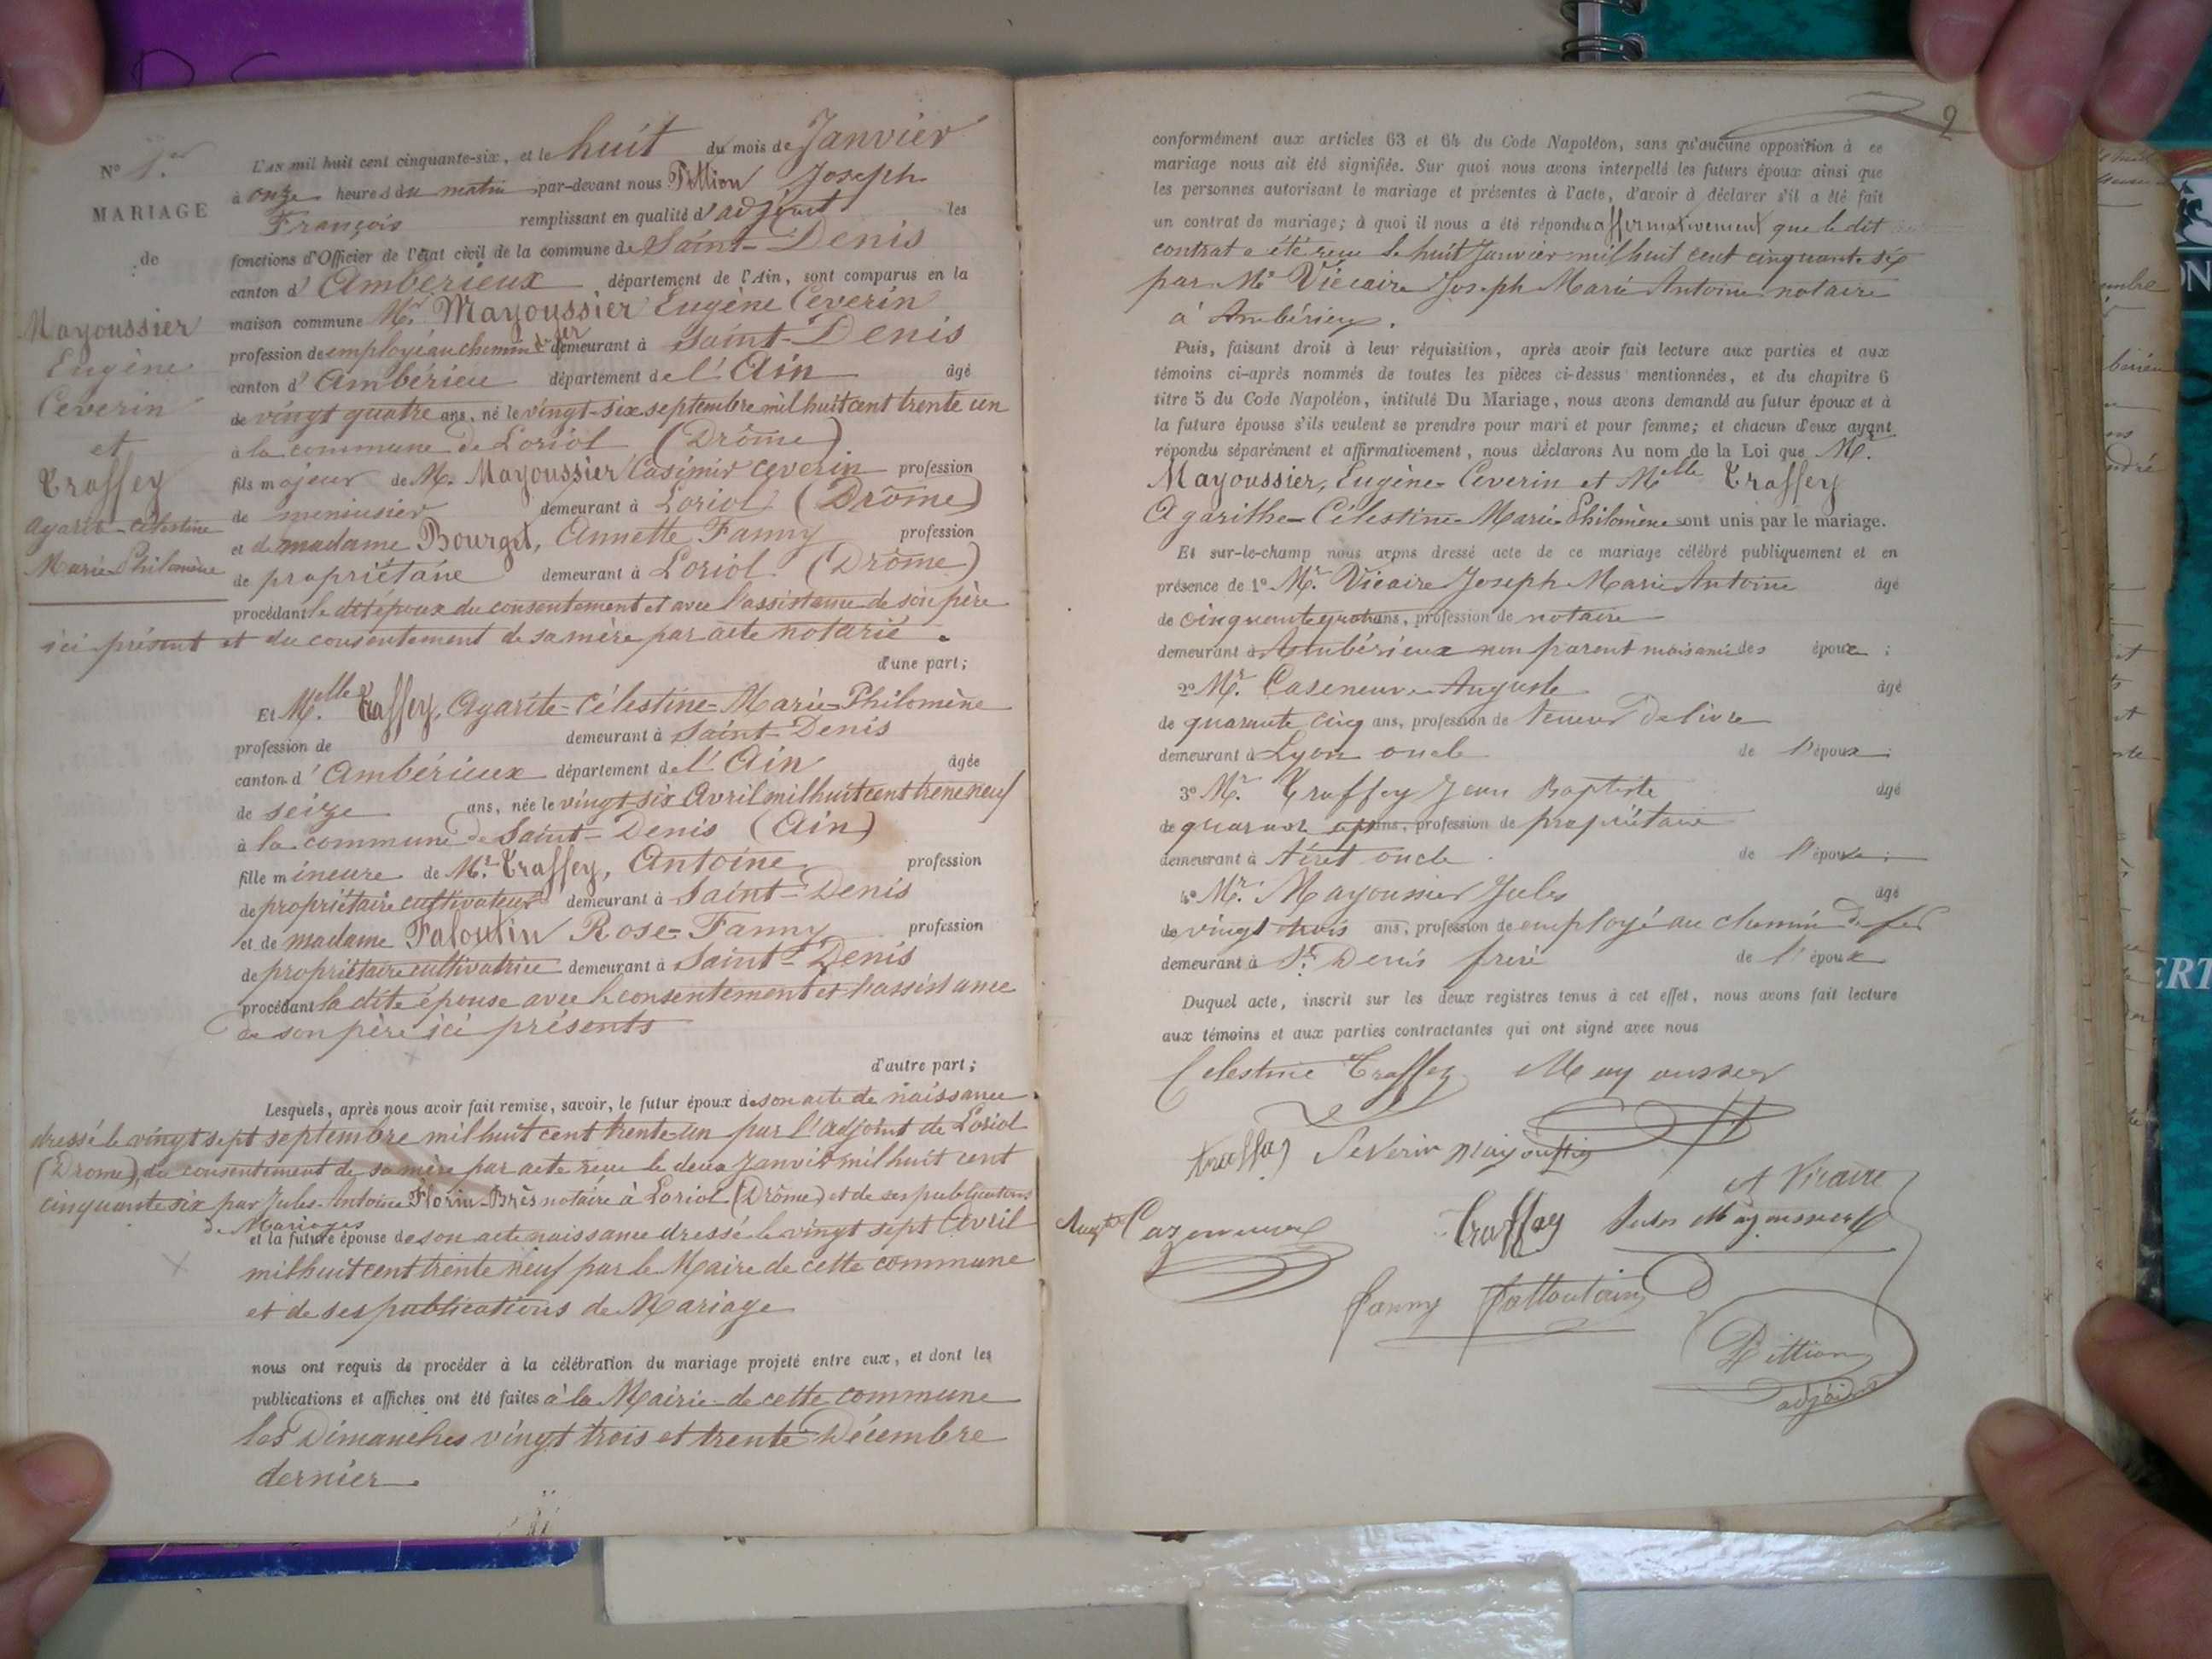 N° 1.er
MARIAGE
de
Mayoussier
Eugène
Ceverin
et
Traffey
Agarite-Célestine
Marie-Philomène
L'AN mil huit cent cinquante-six, et le huit du mois de Janvier
à onze heures du matin par-devant nous Pittion Joseph
François remplissant en qualité d'adjoint les
fonctions d'Officier de l'état civil de la commune de Saint-Denis
canton d'Ambérieux département de l'Ain, sont comparus en la
maison commune Mr. Mayoussier Eugène Ceverin
profession de employé au chemin de fer demeurant à Saint-Denis
canton d'Ambérieu département de l'Ain âgé
de vingt quatre ans, né le vingt-six septembre mil huit cent trente un
à la commune de Loriol (Drôme)
fils majeur de M. Mayoussier Casimir Ceverin profession
de menuisier demeurant à Loriol (Drôme)
et de madame Bourget, Annette Fanny profession
de propriétaire demeurant à Loriol (Drôme)
procédant le dit époux du consentement et avec l'assistance de son père
ici présent et du consentement de sa mère par acte notarié.
d'une part;
Et Melle Traffey, Agarite-Célestine-Marie-Philomène
profession de demeurant à Saint-Denis
canton d'Ambérieux département de l'Ain âgée
de seize ans, née le vingt-six Avril mil huit cent trene neuf
à la commune de Saint-Denis (Ain)
fille mineure de Mr. Traffey, Antoine profession
de propriétaire cultivateur demeurant à Saint-Denis
et de madame Faloutin Rose-Fanny profession
de propriétaire cultivatrice demeurant à Saint-Denis
procédant la dite épouse avec le consentement et l'assistance
de son père ici présents
d'autre part;
Lesquels, après nous avoir fait remise, savoir, le futur époux de son acte de naissance
dressé le vingt sept septembre mil huit cent trente-un par l'adjoint de Loriol
(Drome), du consentement de sa mère par acte reçu le deux Janvier mil huit cent
cinquante six par Jules-Antoine Florin Brès notaire à Loriol (Drôme) et de ses publications
de Mariages
et la future épouse de son acte naissance dressé le vingt sept Avril
mil huit cent trente neuf par le Maire de cette commune
et de ses publications de Mariage
nous ont requis de procéder à la célébration du mariage projeté entre eux, et dont les
publications et affiches ont été faites à la Mairie de cette commune
les Dimanches vingt trois et trente Décembre
dernier.
2
conformément aux articles 63 et 64 du Code Napoléon, sans qu'aucune opposition à ce
mariage nous ait été signifiée. Sur quoi nous avons interpellé les futurs époux ainsi que
les personnes autorisant le mariage et présentes à l'acte, d'avoir à déclarer s'il a été fait
un contrat de mariage; à quoi il nous a été répondu affirmativement que le dit
contrat a été reçu le huit Janvier mil huit cent cinquante six
par Me Viécaire Joseph Marie Antoine notaire
à Ambérieux.
Puis, faisant droit à leur réquisition, après avoir fait lecture aux parties et aux
témoins ci-après nommés de toutes les pièces ci-dessus mentionnées, et du chapitre 6
titre 5 du Code Napoléon, intitulé Du Mariage, nous avons demandé au futur époux et à
la future épouse s'ils veulent se prendre pour mari et pour femme; et chacun d'eux ayant
répondu séparément et affirmativement, nous déclarons Au nom de la Loi que Mr.
Mayoussier, Eugène-Ceverin et Melle Traffey
Agarithe-Célestine-Marie-Philomène sont unis par le mariage.
Et sur-le-champ nous avons dressé acte de ce mariage célébré publiquement et en
présence de 1° Mr. Vicaire Joseph Marie Antoine âgé
de cinquante quatre ans, profession de notaire
demeurant à Ambérieux non parent mais ami des époux;
2° Mr. Caseneuve Auguste âgé
de quarante cinq ans, profession de teneur de livre
demeurant à Lyon oncle de l'époux;
3° Mr. Traffey Jean Baptiste âgé
de quarante sept ans, profession de propriétaire
demeurant à oncle de l'épouse;
4° Mr. Mayoussier Jules âgé
de vingt trois ans, profession de employé au chemin de fer
demeurant à St. Denis frère de l'époux
Duquel acte, inscrit sur les deux registres tenus à cet effet, nous avons fait lecture
aux témoins et aux parties contractantes qui ont signé avec nous
Celestine Traffey Mayoussier
Traffey Severin Mayoussier
A Vicaire
Augte Cazeneuve Traffey Jules Mayoussier
Fanny Fattoutain
Pittion
adjoint